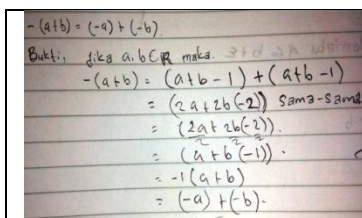 -(a+b) = (-a) + (-b)
Bukti, jika a, b ∈ R maka.
-(a+b) = (a+b-1) + (a+b-1)
= (2a+2b(-2)) sama-sama
= (2a+2b(-2)).
2 2 2
= (a+b(-1)).
= -1(a+b)
= (-a) + (-b).